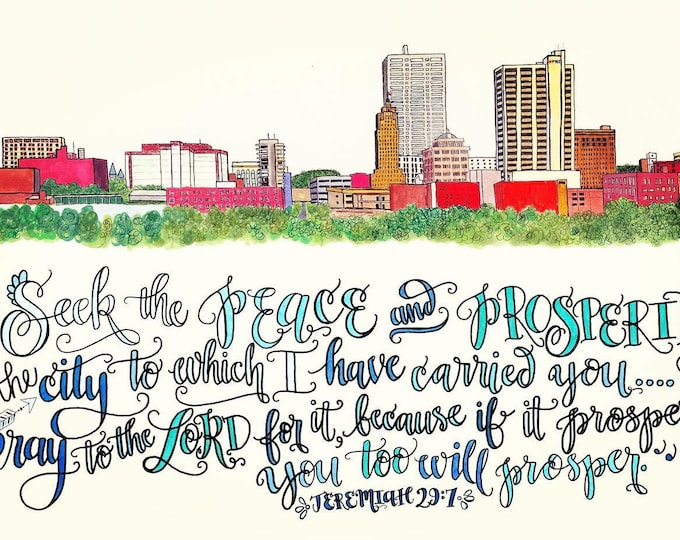 Seek the PEACE and PROSPERIT
the city to which I have carried you....
pray to the LORD for it, because if it prosper
you too will prosper."
JEREMIAH 29:7